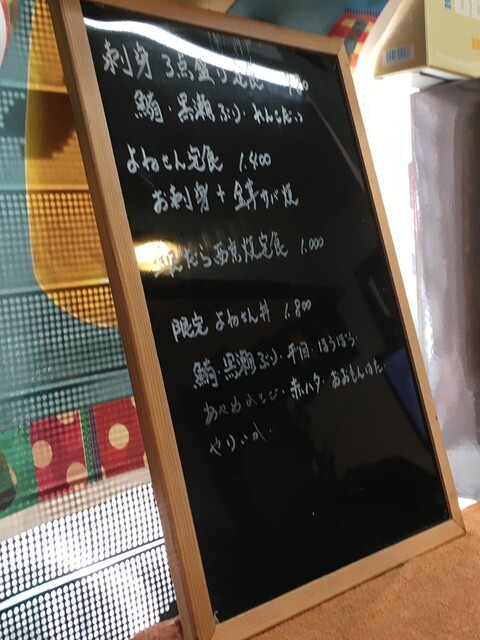 刺身3点盛り定食
鮪・黒瀬ぶり・れんこだい
よねさん定食 1.400
お刺身+金華サバ焼
だら西京焼定食 1.000
限定 よねさん丼 1.800
鮪・黒瀬ぶり・平目・ほうぼう・
赤ハタ・おおもんはた・
やりいか・